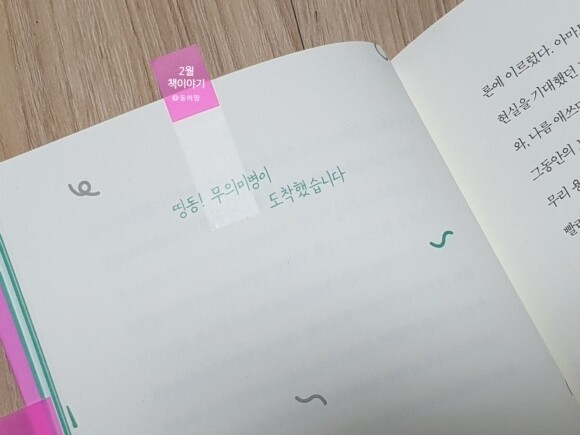 2월
책이야기
띵동! 무의미병이
도착했습니다
론에 이르렀다. 아마
현실을 기대했던
와, 나름 애쓰
그동안의
무리 용
빨리